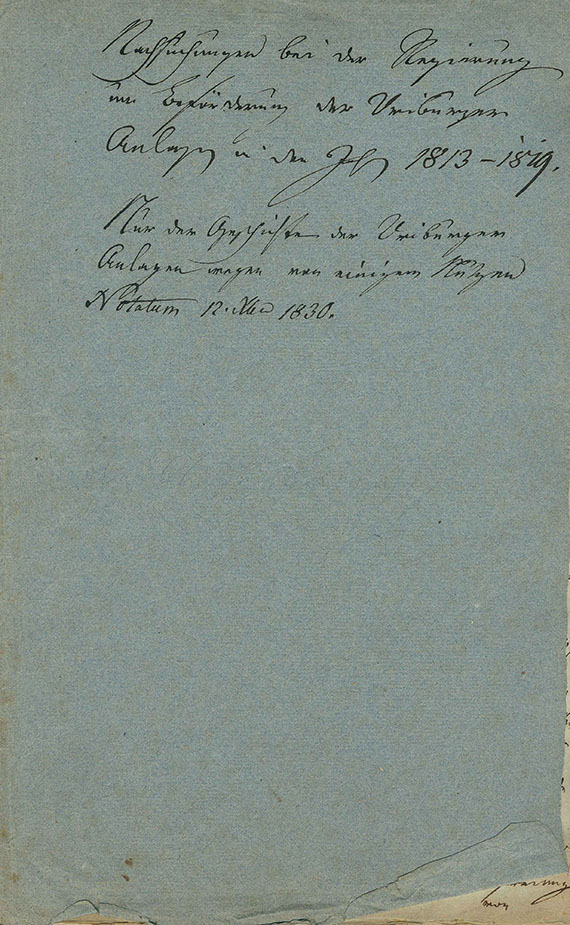 Nachsuchungen bei der Regierung
um Beförderung der Driburger
Anlagen in den Jh 1813–1819.
Nur der Geschichte der Driburger
Anlagen wegen von einigem Nutzen
Notatum 12. Xbr 1830.
von